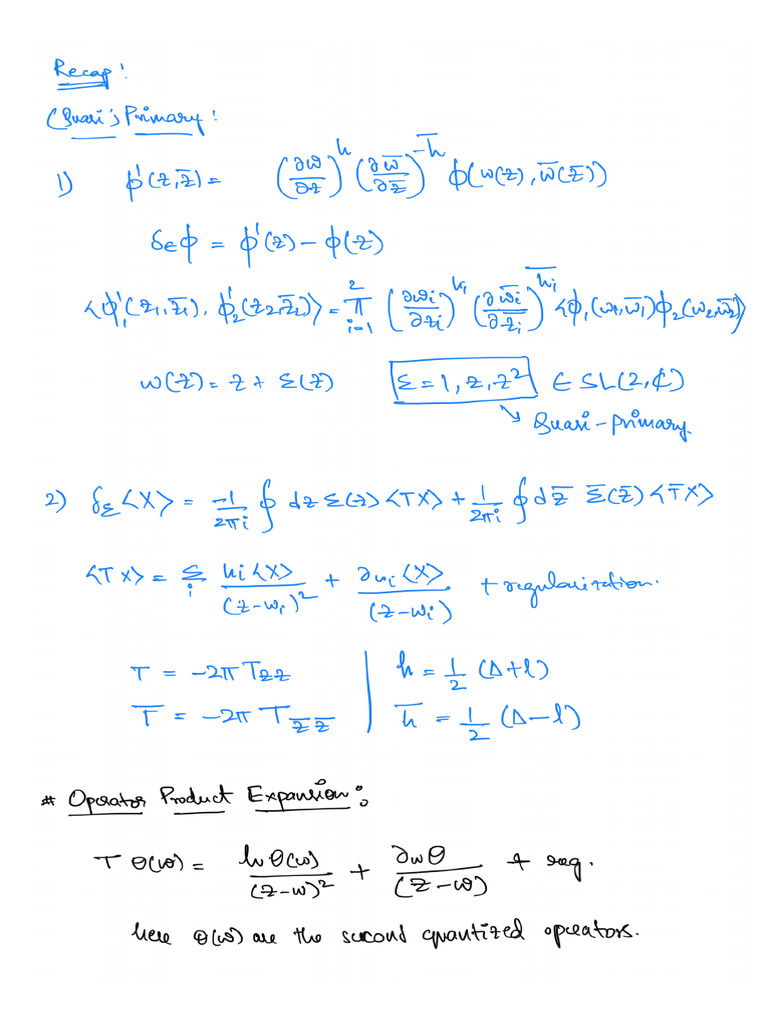 Recap:
(Quasi) Primary:
1) ϕ'(z, z̄) = (∂ω/∂z)^h (∂ω̄/∂z̄)^-h̄ ϕ(ω(z), ω̄(z̄))
δ_ϵ ϕ = ϕ'(z) − ϕ(z)
<ϕ'₁(z₁, z̄₁). ϕ'₂(z₂, z̄₂)> = ∏_{i=1}^{2} (∂ω_i/∂z_i)^{h_i} (∂ω̄_i/∂z̄_i)^{h̄_i} <ϕ₁(ω₁, ω̄₁) ϕ₂(ω₂, ω̄₂)>
ω(z) = z + Σ(z) Σ = 1, z, z² ∈ SL(2, ℂ)
↘ Quasi-primary.
2) δ_Σ <X> = −1/2πi ∮ dz Σ(z) <TX> + 1/2πi ∮ dz̄ Σ̄(z̄) <T̄X>
<TX> = Σ_i h_i<X>/(z−ω_i)² + ∂ω_i<X>/(z−ω_i) + regularization.
T = −2π T_zz | h = 1/2 (Δ+l)
T̄ = −2π T_z̄z̄ | h̄ = 1/2 (Δ−l)
# Operator Product Expansion:
T θ(ω) = h θ(ω)/(z−ω)² + ∂ω θ/(z−ω) + reg.
here θ(ω) are the second quantized operators.